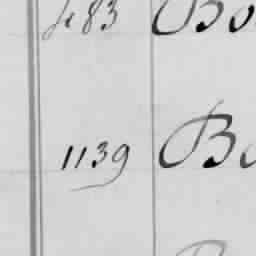 483 Bo
1139 Bo